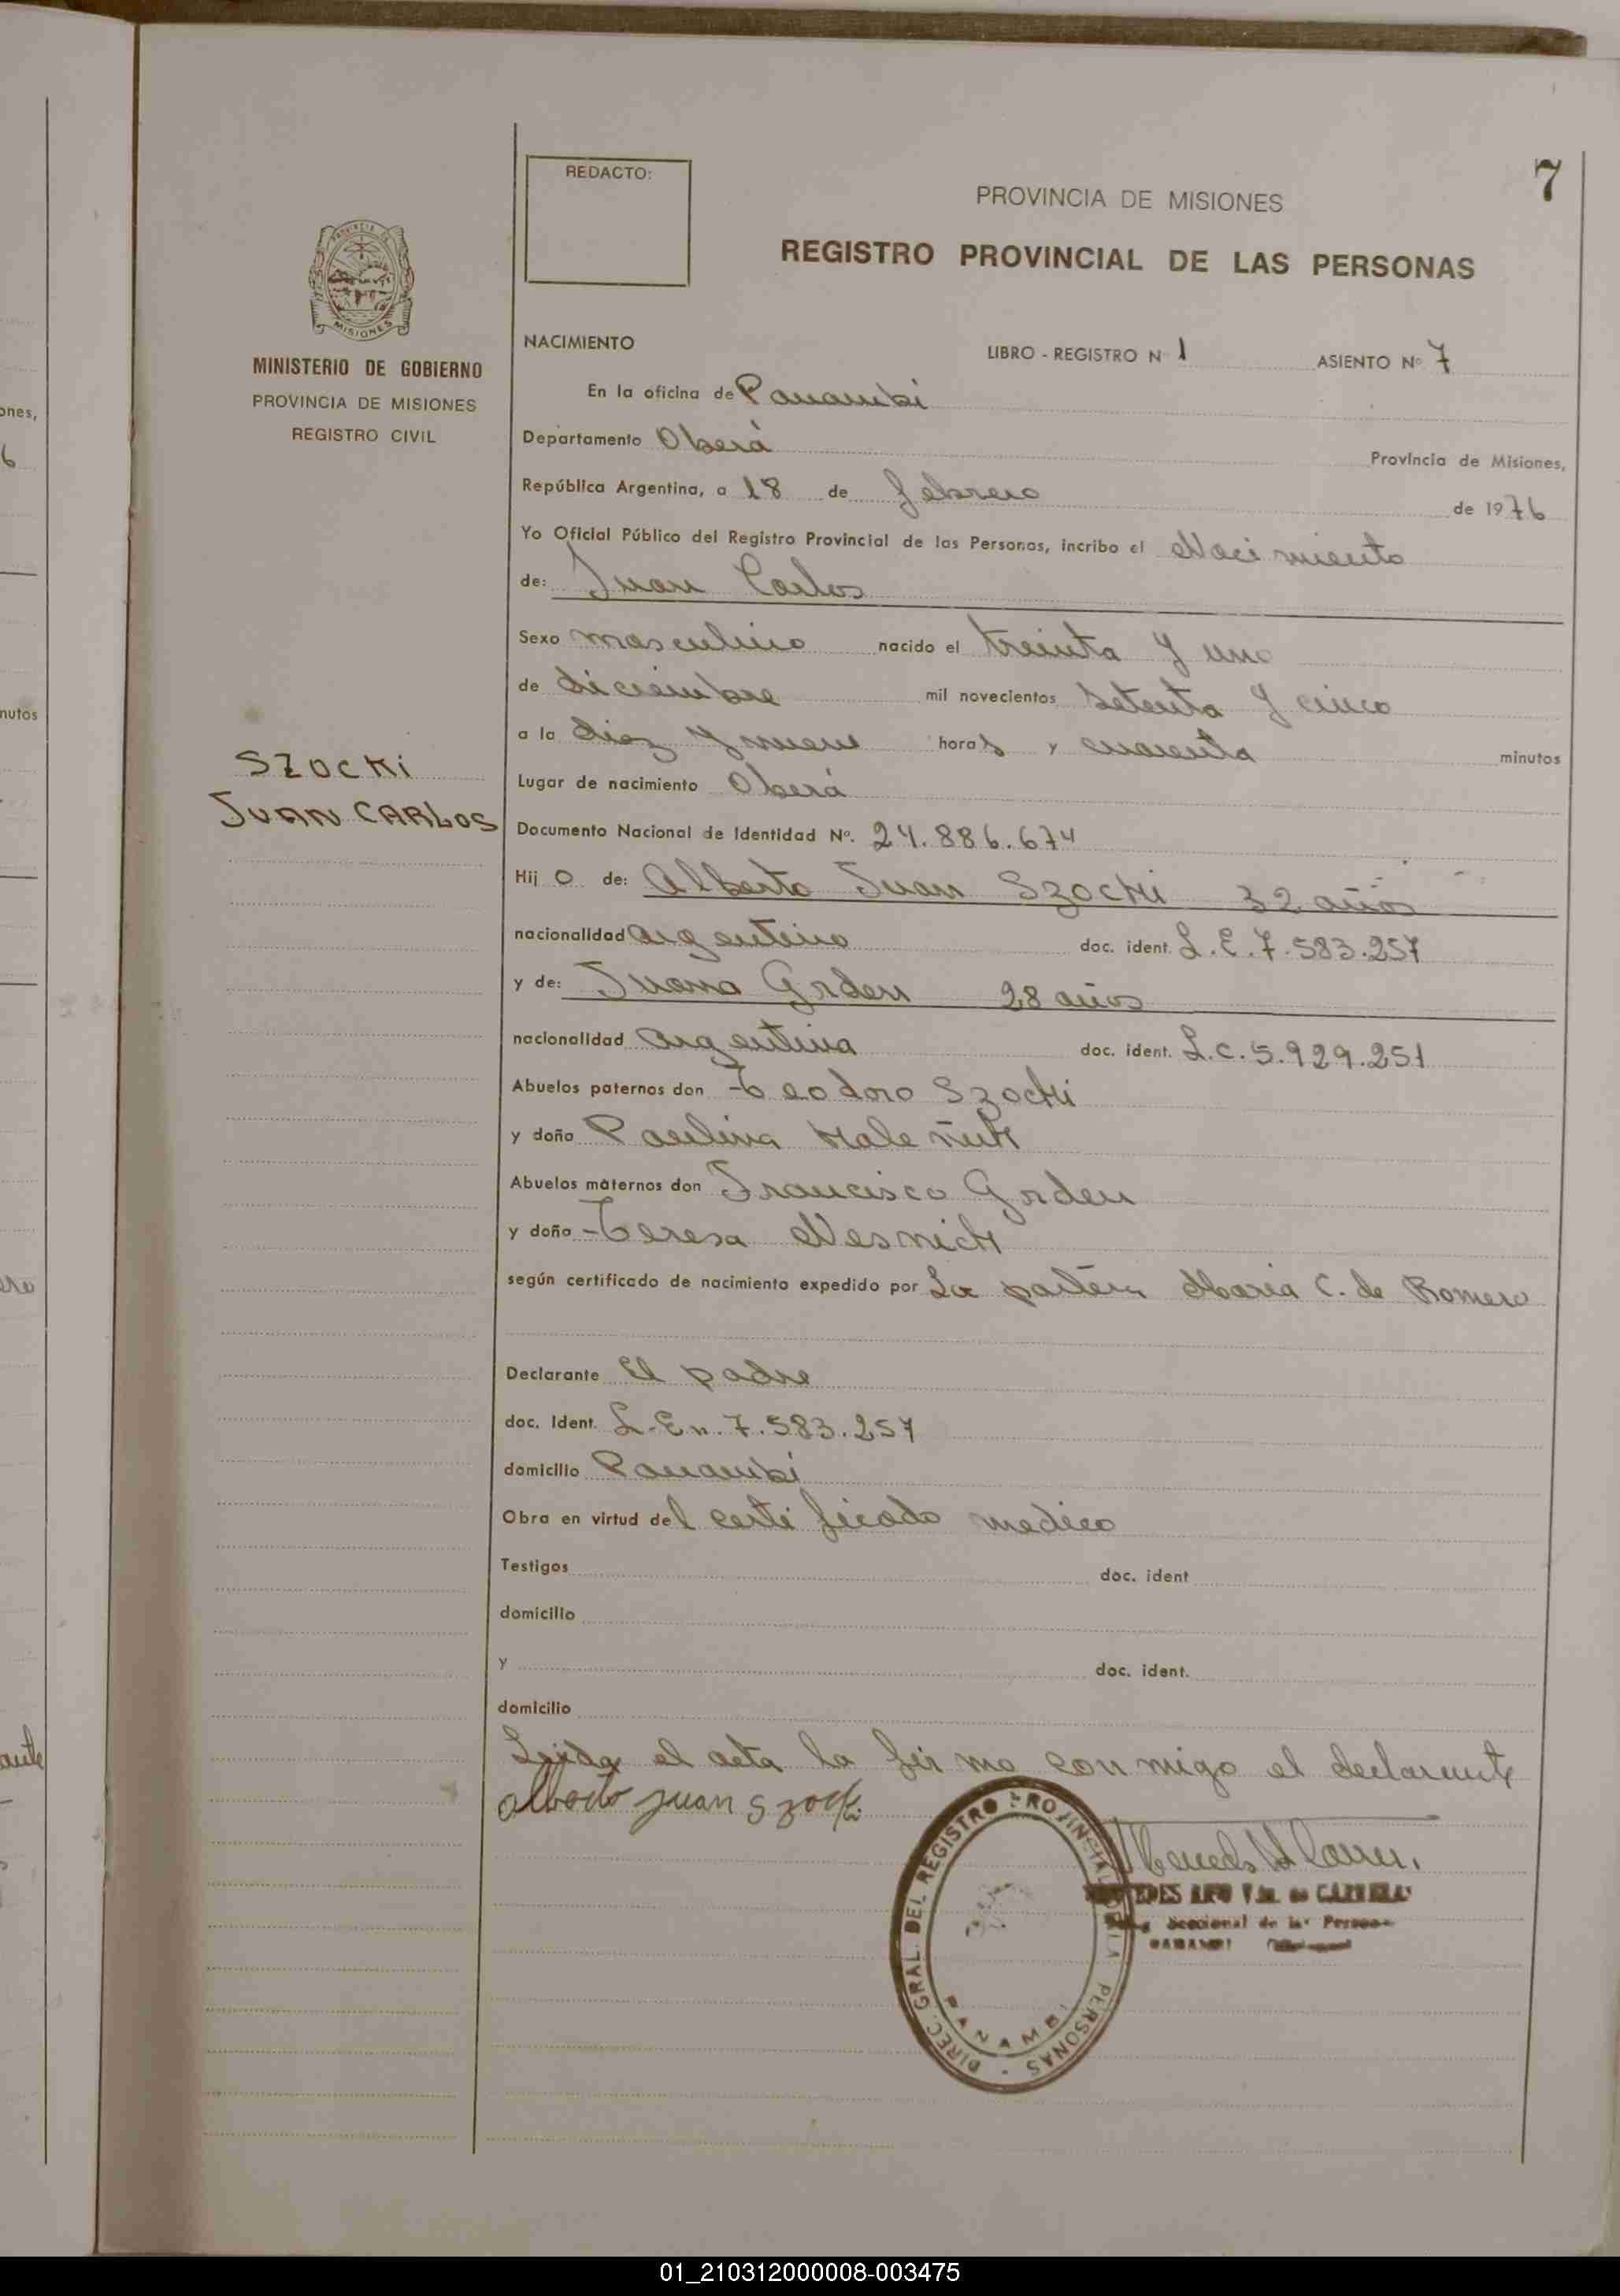 7
REDACTO:
PROVINCIA DE MISIONES
REGISTRO PROVINCIAL DE LAS PERSONAS
MISIONES
MINISTERIO DE GOBIERNO
PROVINCIA DE MISIONES
REGISTRO CIVIL
SZOCKI
JUAN CARLOS
NACIMIENTO LIBRO - REGISTRO N 1 ASIENTO Nº 7
En la oficina de Panambi
Departamento Oberá Provincia de Misiones,
República Argentina, a 18 de febrero de 1976
Yo Oficial Público del Registro Provincial de las Personas, incribo el Nacimiento
de: Juan Carlos
Sexo masculino nacido el treinta y uno
de diciembre mil novecientos setenta y cinco
a la diez y nueve horas y cuarenta minutos
Lugar de nacimiento Oberá
Documento Nacional de Identidad Nº. 24.886.674
Hij o de: Alberto Juan Szocki 32 años
nacionalidad argentino doc. ident. L.E. 7.583.257
y de: Juana Grden 28 años
nacionalidad argentina doc. ident. L.C. 5.929.251
Abuelos paternos don Teodoro Szocki
y doña Paulina
Abuelos maternos don Francisco Grden
y doña Teresa
según certificado de nacimiento expedido por La partera Maria C. de Romero
Declarante El padre
doc. Ident. L.En. 7.583.257
domicilio Panambi
Obra en virtud del certificado medico
Testigos doc. ident
domicilio
y doc. ident.
domicilio
Leida el acta la firma conmigo el declarante
Alberto Juan Szocki
DIREC. GRAL. DEL REGISTRO PROVINCIAL PERSONAS
PANAMBI
de CABRERA
Seccional de las Personas
PANAMBI
01_210312000008-003475